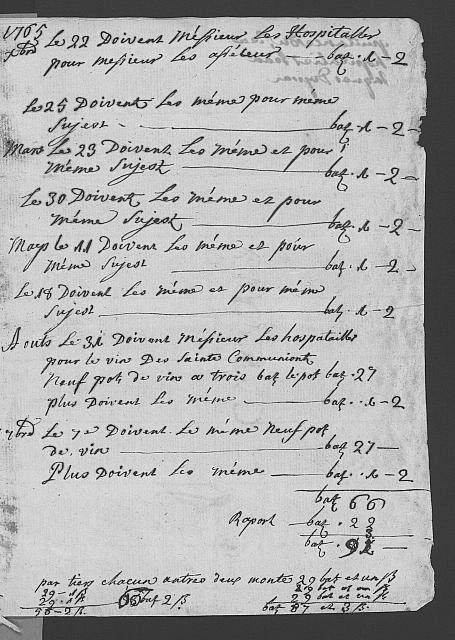 1765
xbre Le 22 Doivent Messieur Les Hospitalles
pour messieur Les assieteur baz. 1 - 2
Le 25 Doivent Les méme pour méme
Sujest baz. 1 - 2 -
Mars Le 23 Doivent Les méme et pour
méme Sujest baz. 1 - 2 -
Le 30 Doivent Les méme et pour
méme Sujest baz. 1 - 2 -
Mays le 11 Doivent Les méme et pour
méme Sujest baz. 1 - 2 -
Le 18 Doivent Les méme et pour méme
Sujest baz. 1 - 2
Aouts Le 31 Doivent Méssieur Les hospitaller
pour le vin Des Sainte Communiont
Neuf pot de vin a trois baz le pot baz. 27
plus Doivent Les méme baz. 1 - 2
7bre Le 7e Doivent Le méme Neuf pot
de vin baz 27
Plus Doivent Les méme baz. 1 - 2
baz 66
Raport baz. 22
baz.
par tiers chacun entres deux monte 29 bat et un ß
29 - 1 ß
29 bat et un ß
29 bat et un ß
baz 87 et 3 ß.